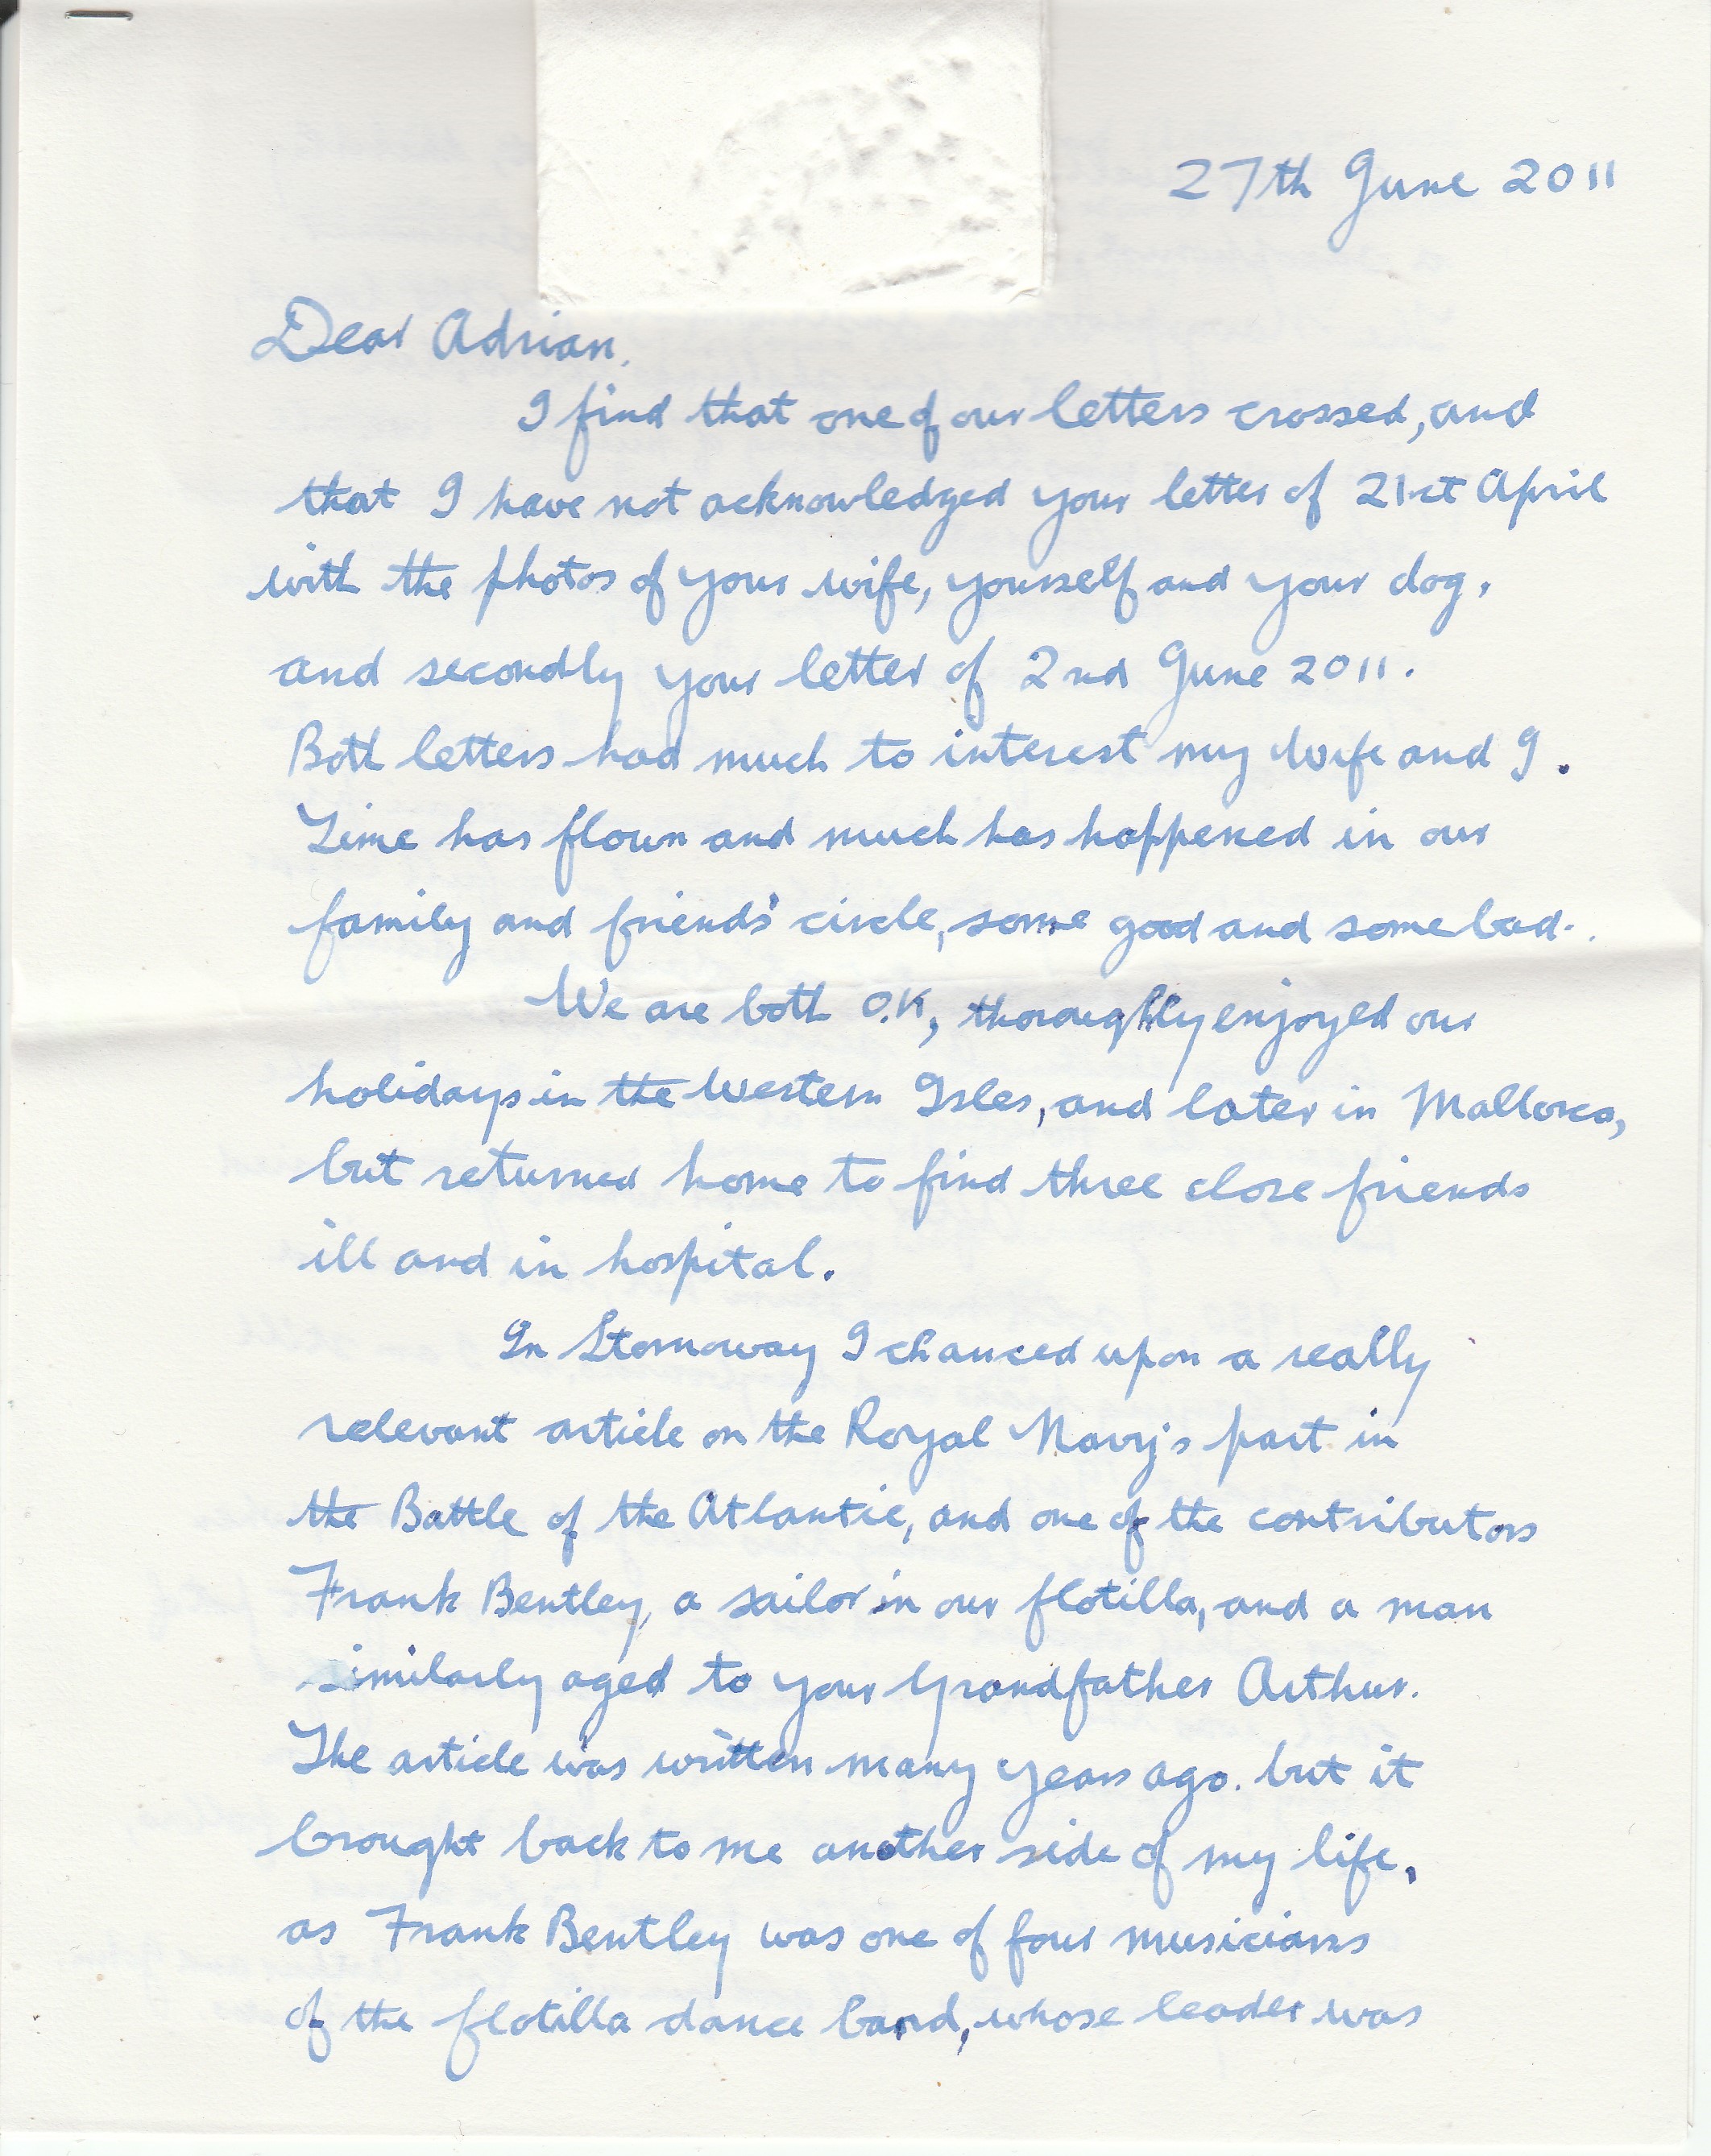 27th June 2011
Dear Adrian,
I find that one of our letters crossed, and
that I have not acknowledged your letter of 21st April
with the photos of your wife, yourself and your dog,
and secondly your letter of 2nd June 2011.
Both letters had much to interest my wife and I.
Time has flown and much has happened in our
family and friends' circle, some good and some bad.
We are both O.K, thoroughly enjoyed our
holidays in the Western Isles, and later in Mallorca,
but returned home to find three close friends
ill and in hospital.
In Stornoway I chanced upon a really
relevant article on the Royal Navy's part in
the Battle of the Atlantic, and one of the contributors
Frank Bentley, a sailor in our flotilla, and a man
similarly aged to your Grandfather Arthur.
The article was written many years ago. but it
brought back to me another side of my life,
as Frank Bentley was one of four musicians
of the flotilla dance band, whose leader was